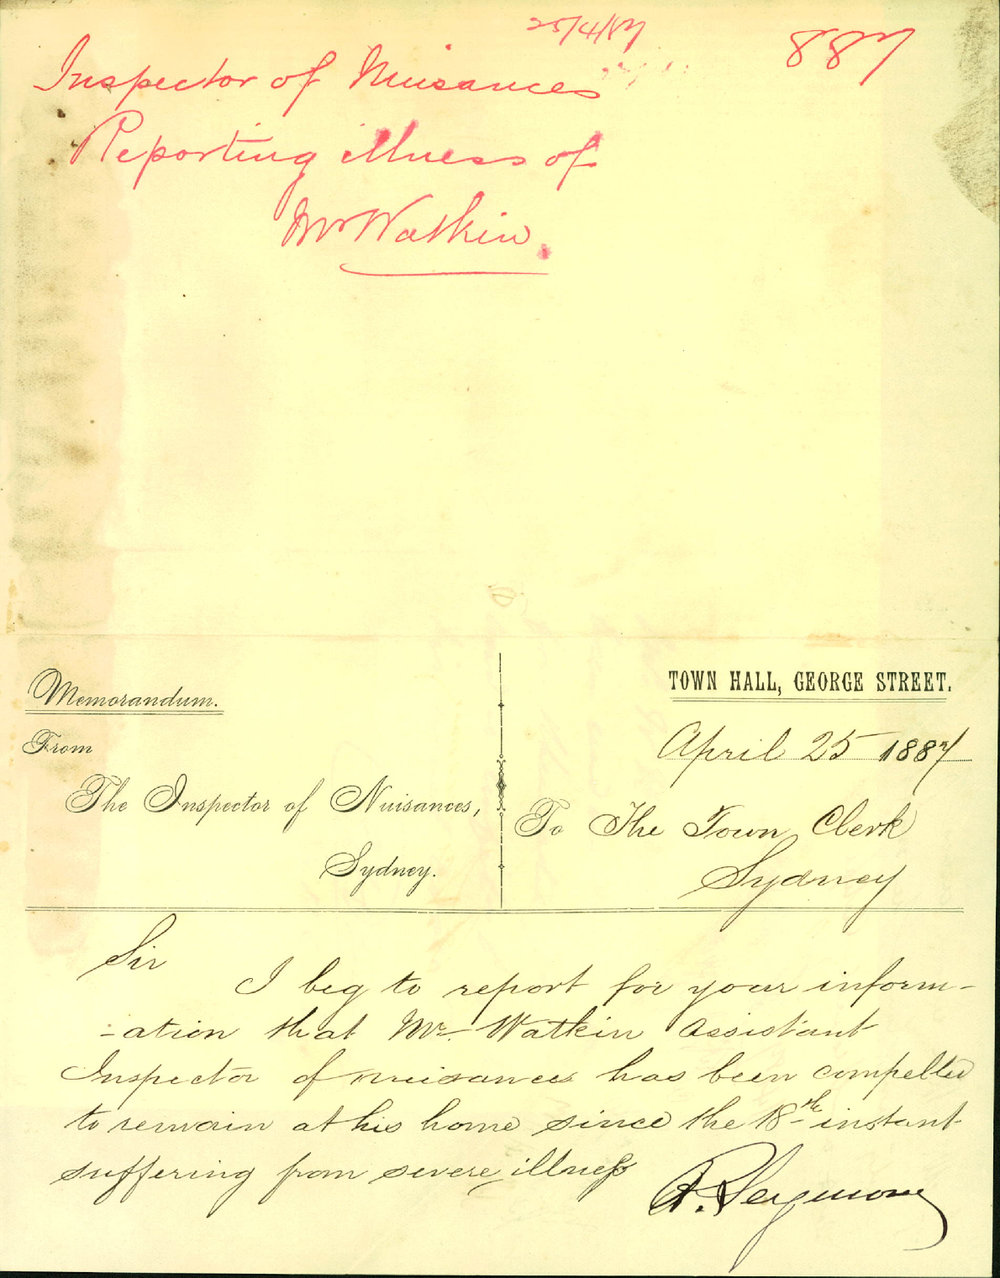 25/4/87
887
Inspector of Nuisances
Reporting illness of
Mr Watkin.
Memorandum.
From
The Inspector of Nuisances,
Sydney.
TOWN HALL, GEORGE STREET.
April 25 1887
To The Town Clerk
Sydney
Sir
I beg to report for your inform-
-ation that Mr. Watkin Assistant
Inspector of nuisances has been compelled
to remain at his home since the 18th instant
suffering from severe illness